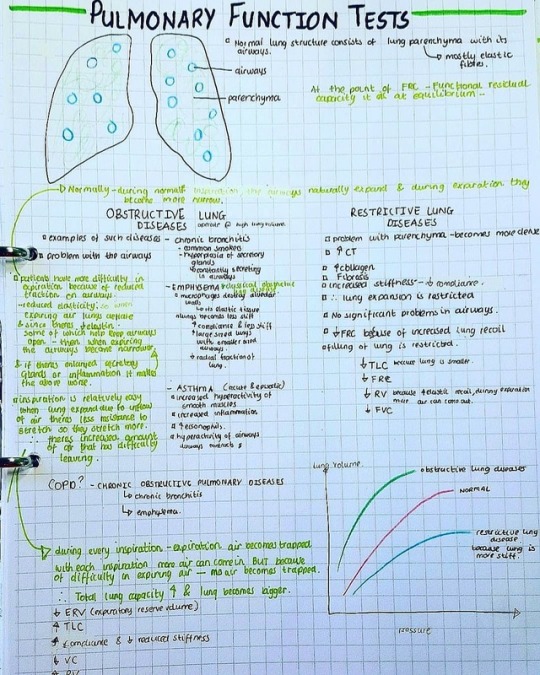 PULMONARY FUNCTION TESTS
Normal lung structure consists of lung parenchyma with its
airways.
mostly elastic
fibres.
airways
parenchyma
At the point of FRC - Functional residual
capacity it all at equilibrium -
Normally - during normal inspiration, the airways naturally expand & during expiration they
become more narrow.
OBSTRUCTIVE LUNG
DISEASES operate @ high lung volume
examples of such diseases - chronic bronchitis
common smokers
hyperplasia of secretory
glands
constantly secreting
in airways
problem with the airways
patients have more difficulty in
expiration because of reduced
traction on airways.
reduced elasticity, so when
expiring air lungs deflate
& since theres ↓elastin
some of which help keep airways
open - then when expiring
the airways become narrower
& if theres enlarged secretory
glands or inflammation it makes
the above worse.
inspiration is relatively easy
when lung expand due to inflow
of air theres less resistance to
stretch so they stretch more.
∴ theres increased amount
of air that has difficulty
leaving.
- EMPHYSEMA
macrophages destroy alveolar
walls
its elastic tissue
lungs become less stiff
↑ compliance & less stiff
large sized lungs
with smaller sized
airways.
↓ radial traction of
lung.
- ASTHMA (acute & episodic)
increased hyperactivity of
smooth muscles
increased inflammation
↑ eisonophils.
hyperactivity of airways
RESTRICTIVE LUNG
DISEASES
problem with parenchyma - becomes more dense
↑ CT
↑ collagen
Fibrosis
increased stiffness - ↓ compliance.
∴ lung expansion is restricted
No significant problems in airways.
↓ FRC because of increased lung recoil
filling of lung is restricted.
↓ TLC because lung is smaller.
↓ FRC
↓ RV because ↑ elastic recoil, during expiration
more air can come out.
↓ FVC
COPD? - CHRONIC OBSTRUCTIVE PULMONARY DISEASES
↳ chronic bronchitis
↳ emphysema.
during every inspiration - expiration air becomes trapped
with each inspiration more air can come in BUT because
of difficulty in expiring air — mo air becomes trapped.
∴ Total lung capacity ↑ & lung becomes bigger.
↓ ERV (expiratory reserve volume)
↑ TLC
↑ compliance & ↓ reduced stiffness
↓ VC
RV
lung volume.
obstructive lung diseases
NORMAL
restrictive lung
disease.
because lung is
more stiff.
pressure